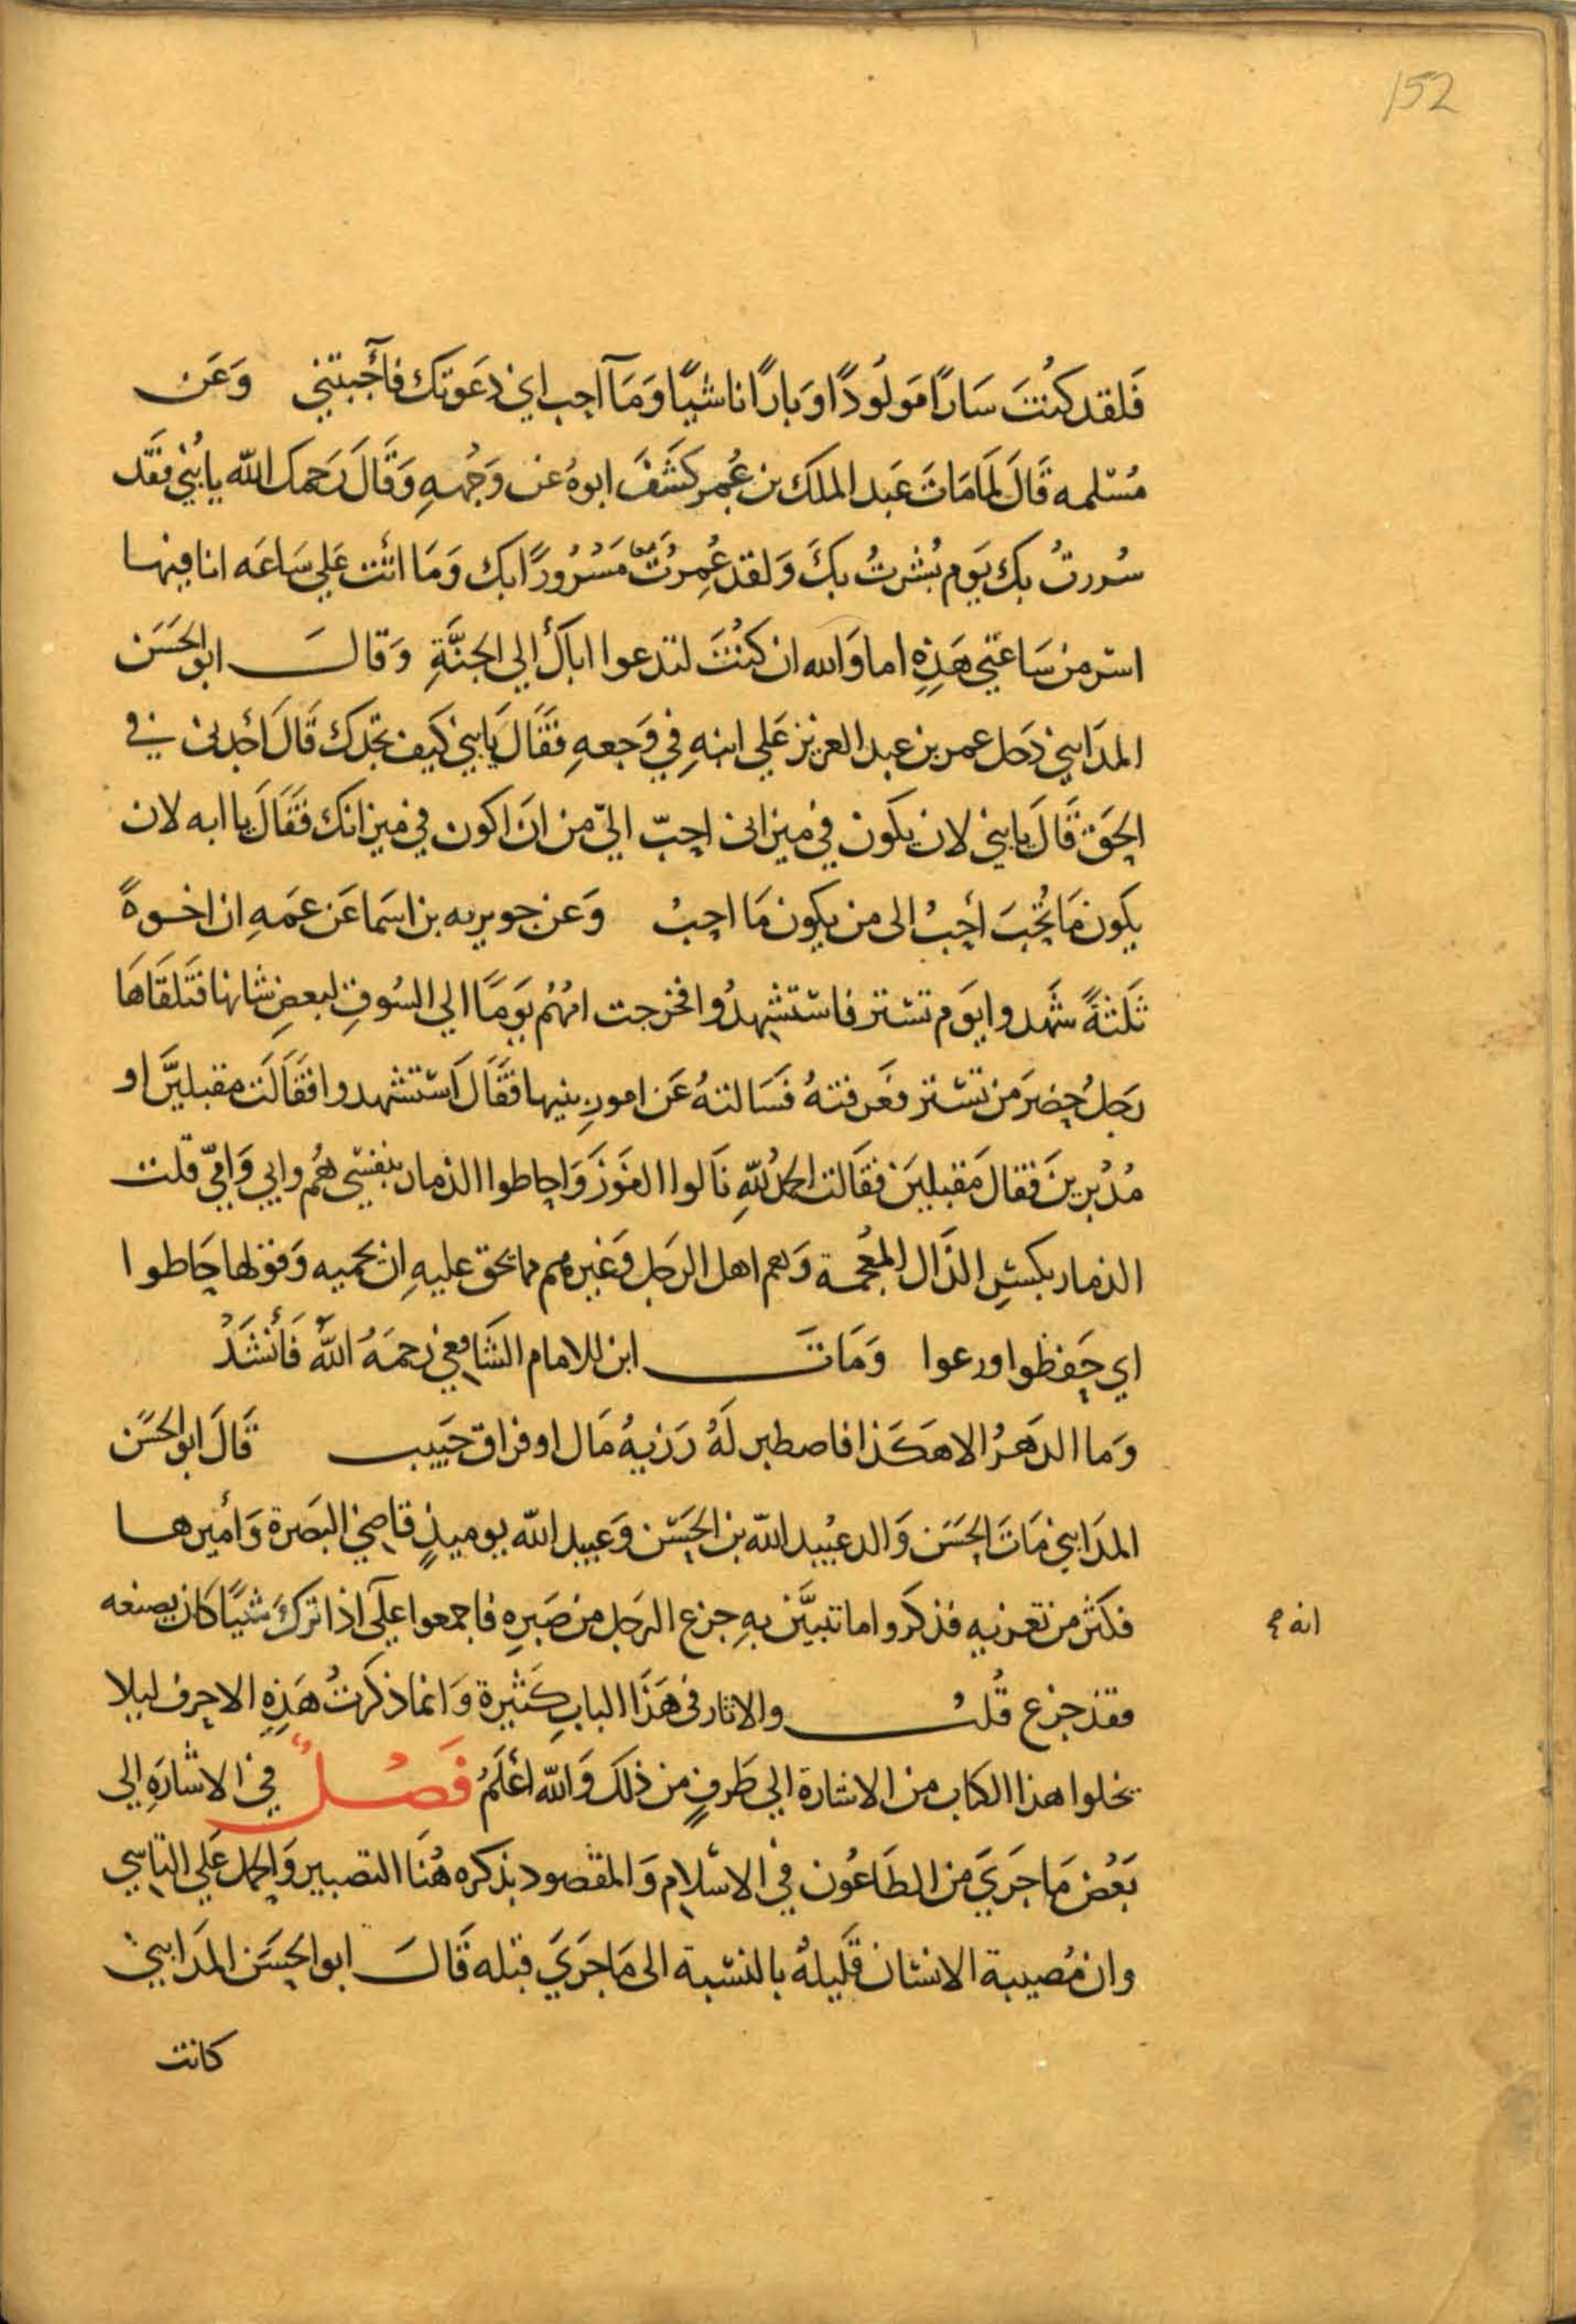 152
فَلقد كنُتَ سَارًا مَولُودًا وَبارًا ناشيًا وَمَآ احِب اني دَعَوتك فأَجبتني وَعَن
مُسْلمه قَالَ لمَا مَاتَ عَبد الملك بن عُمر كَشَفَ ابوهُ عن وَجْهِهِ وَقَالَ رَحمك الله يابُني فقَد
سُررتُ بك يَوم بُشرتُ بكَ وَلقد عُمِرْتَ مَسْرُورًا بك وَمَا اتَت عَلي سَاعَه انا فيها
اسّر من سَاعتي هَذِهِ اما وَالله ان كنُتَ لتدعوا اباكَ الي الجنَّةِ وَقالَ ابو الحَسَن
المدَايني دَخل عمر بن عبد العزيز عَلي ابنهِ في وَجعهِ فقَالَ يَابني كَيف تجَدك قَالَ أجدني في
الحَق قَالَ يابني لان يكون في ميزاني احِبّ اليّ من ان اكون في ميزانك فقَالَ يا ابه لان
يكون مَا تُحبَ أحِبُ الى من يكون مَا احِبُ وَعن جويريه بن اسَما عَن عَمهِ ان اخوةً
ثَلثةً شَهدوا يَوم تسْتر فاسْتشهدُوا فخرجت امُهُم يَومًا الي السُوقِ لبعضِ شانها فتَلقَاهَا
رَجلُ حِضرَ من تسْتر فعَرفتهُ فَسَالتهُ عَن امورِ بنيها فقَالَ اسْتشهدوا فقَالَت مقبليَن او
مُدْبرينَ فقالَ مَقبليَن فقَالت الحَمدُ للهِ نَالوا الفَوزَ وَاحِاطوا الذمار بنفسْي هُم وابي وَاميّ قلت
الذمار بكسْرِ الذَال المعجمة وَهم اهل الرجَل وَغيرهم مما يحق عليهِ ان يحميه وَقولها حَاطوا
اي حِفظوا ورعوا وَمَاتَ ابن للامام الشَافعي رَحَمَهُ اللهُ فَأَنْشَدَ
وَما الدَهرُ الا هَكَذا فاصطبر لَهُ رَزيهُ مَال او فراق حَبيب قَالَ ابو الحسَن
المدَايني مَاتَ الحِسَن وَالد عبُيد الله بن الحِسَن وَعبيد الله يوميذٍ قاضِي البَصَرة وَأميرها
فكثر من تعزيه فذكروا ما تتبيَّن بهِ جزع الرَجل من صَبرِهِ فاجمعوا علَي اذا ترك شَيًا كَان يصنعه
انه صح
فقد جزع قُلتُ والاثار في هَذَا البابِ كَثيرة وَانما ذكرتُ هَذِهِ الاحِرف ليلا
يخلوا هذا الكتاب من الاشارة الي طَرفٍ من ذلكَ وَالله اعْلَمُ فَصْلٌ في الاشَارَةِ الي
بَعْض مَا جَرَيَ من الطَاعُون في الاسْلامِ وَالمقصود بذكره هُنَا التصبير وَالحِمل عَلي التاسِي
وان مُصيبة الانسْان قَليلهُ بالنسْبة الى مَا جَرَيَ قبله قَالَ ابو الحِسَن المدَايني
كانت